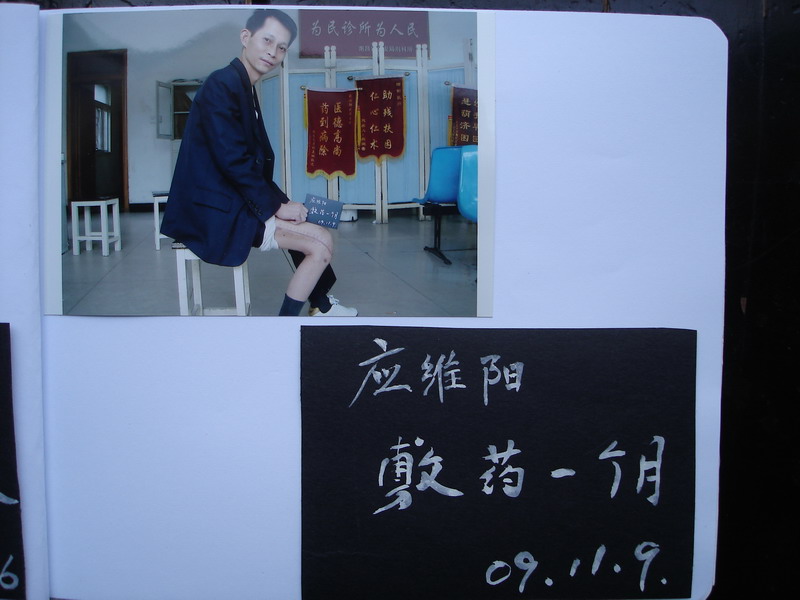 为民诊所为人民
医德高尚
药到病除
助残扶困
仁心仁术
应维阳
敷药一个月
09.11.9
应维阳
敷药一个月
09.11.9.
6